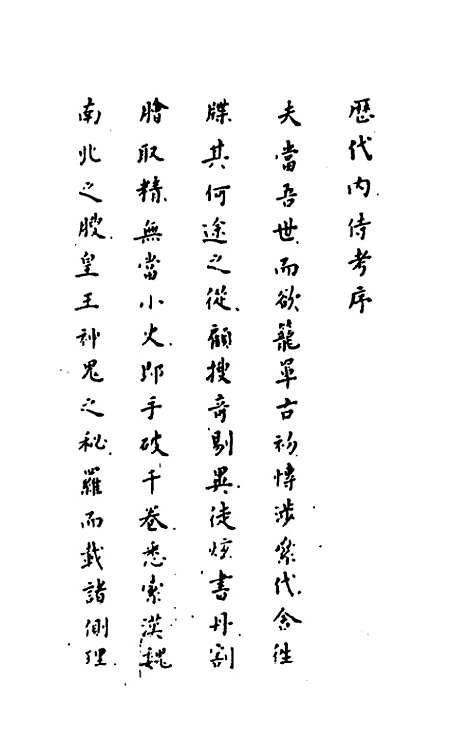 歷代內侍考序
夫當吾世而欲籠罩古初博涉累代舍往
牒其何途之從顧搜奇剔異徒炫書丹割
膾取精無當小火即手破千卷悉索漢魏
南北之腴皇王神鬼之秘羅而載諸側理